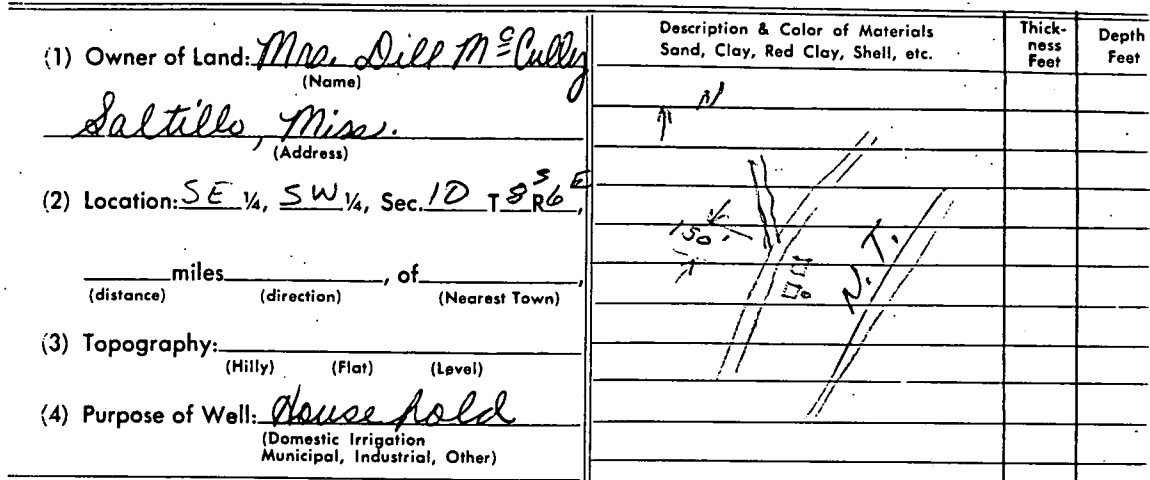 (1) Owner of Land: Mrs. Dill McCully
(Name)
Saltillo, Miss.
(Address)
(2) Location: SE ¼, SW ¼, Sec. 10 T 8 S R 6 E,
miles , of ,
(distance) (direction) (Nearest Town)
(3) Topography:
(Hilly) (Flat) (Level)
(4) Purpose of Well: Household
(Domestic Irrigation
Municipal, Industrial, Other)
Description & Color of Materials
Sand, Clay, Red Clay, Shell, etc.
Thick-
ness
Feet
Depth
Feet
N
150'
N.T.